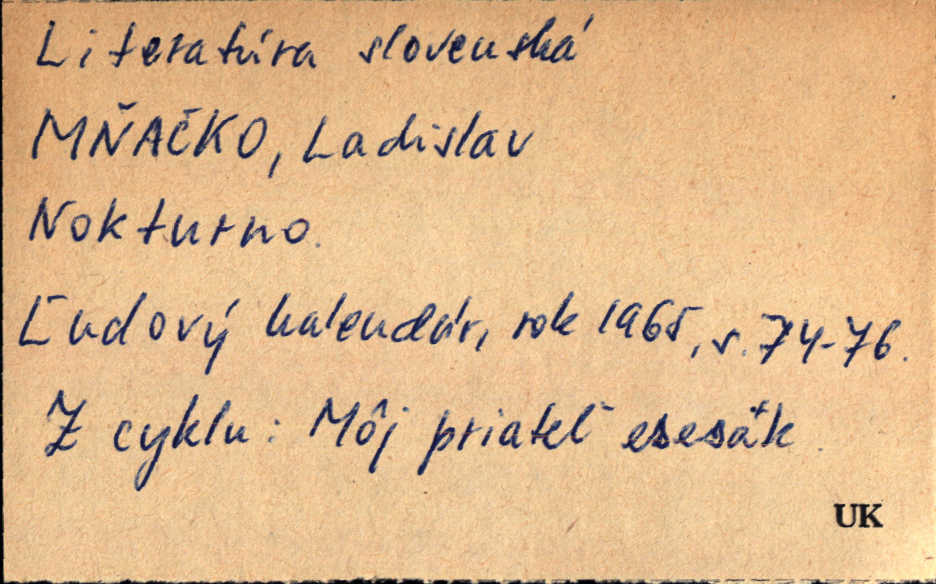 Literatúra slovenská
MŇAČKO, Ladislav
Nokturno.
Ľudový kalendár, rok 1965, s. 74-76.
Z cyklu: Môj priateľ esesák.
UK